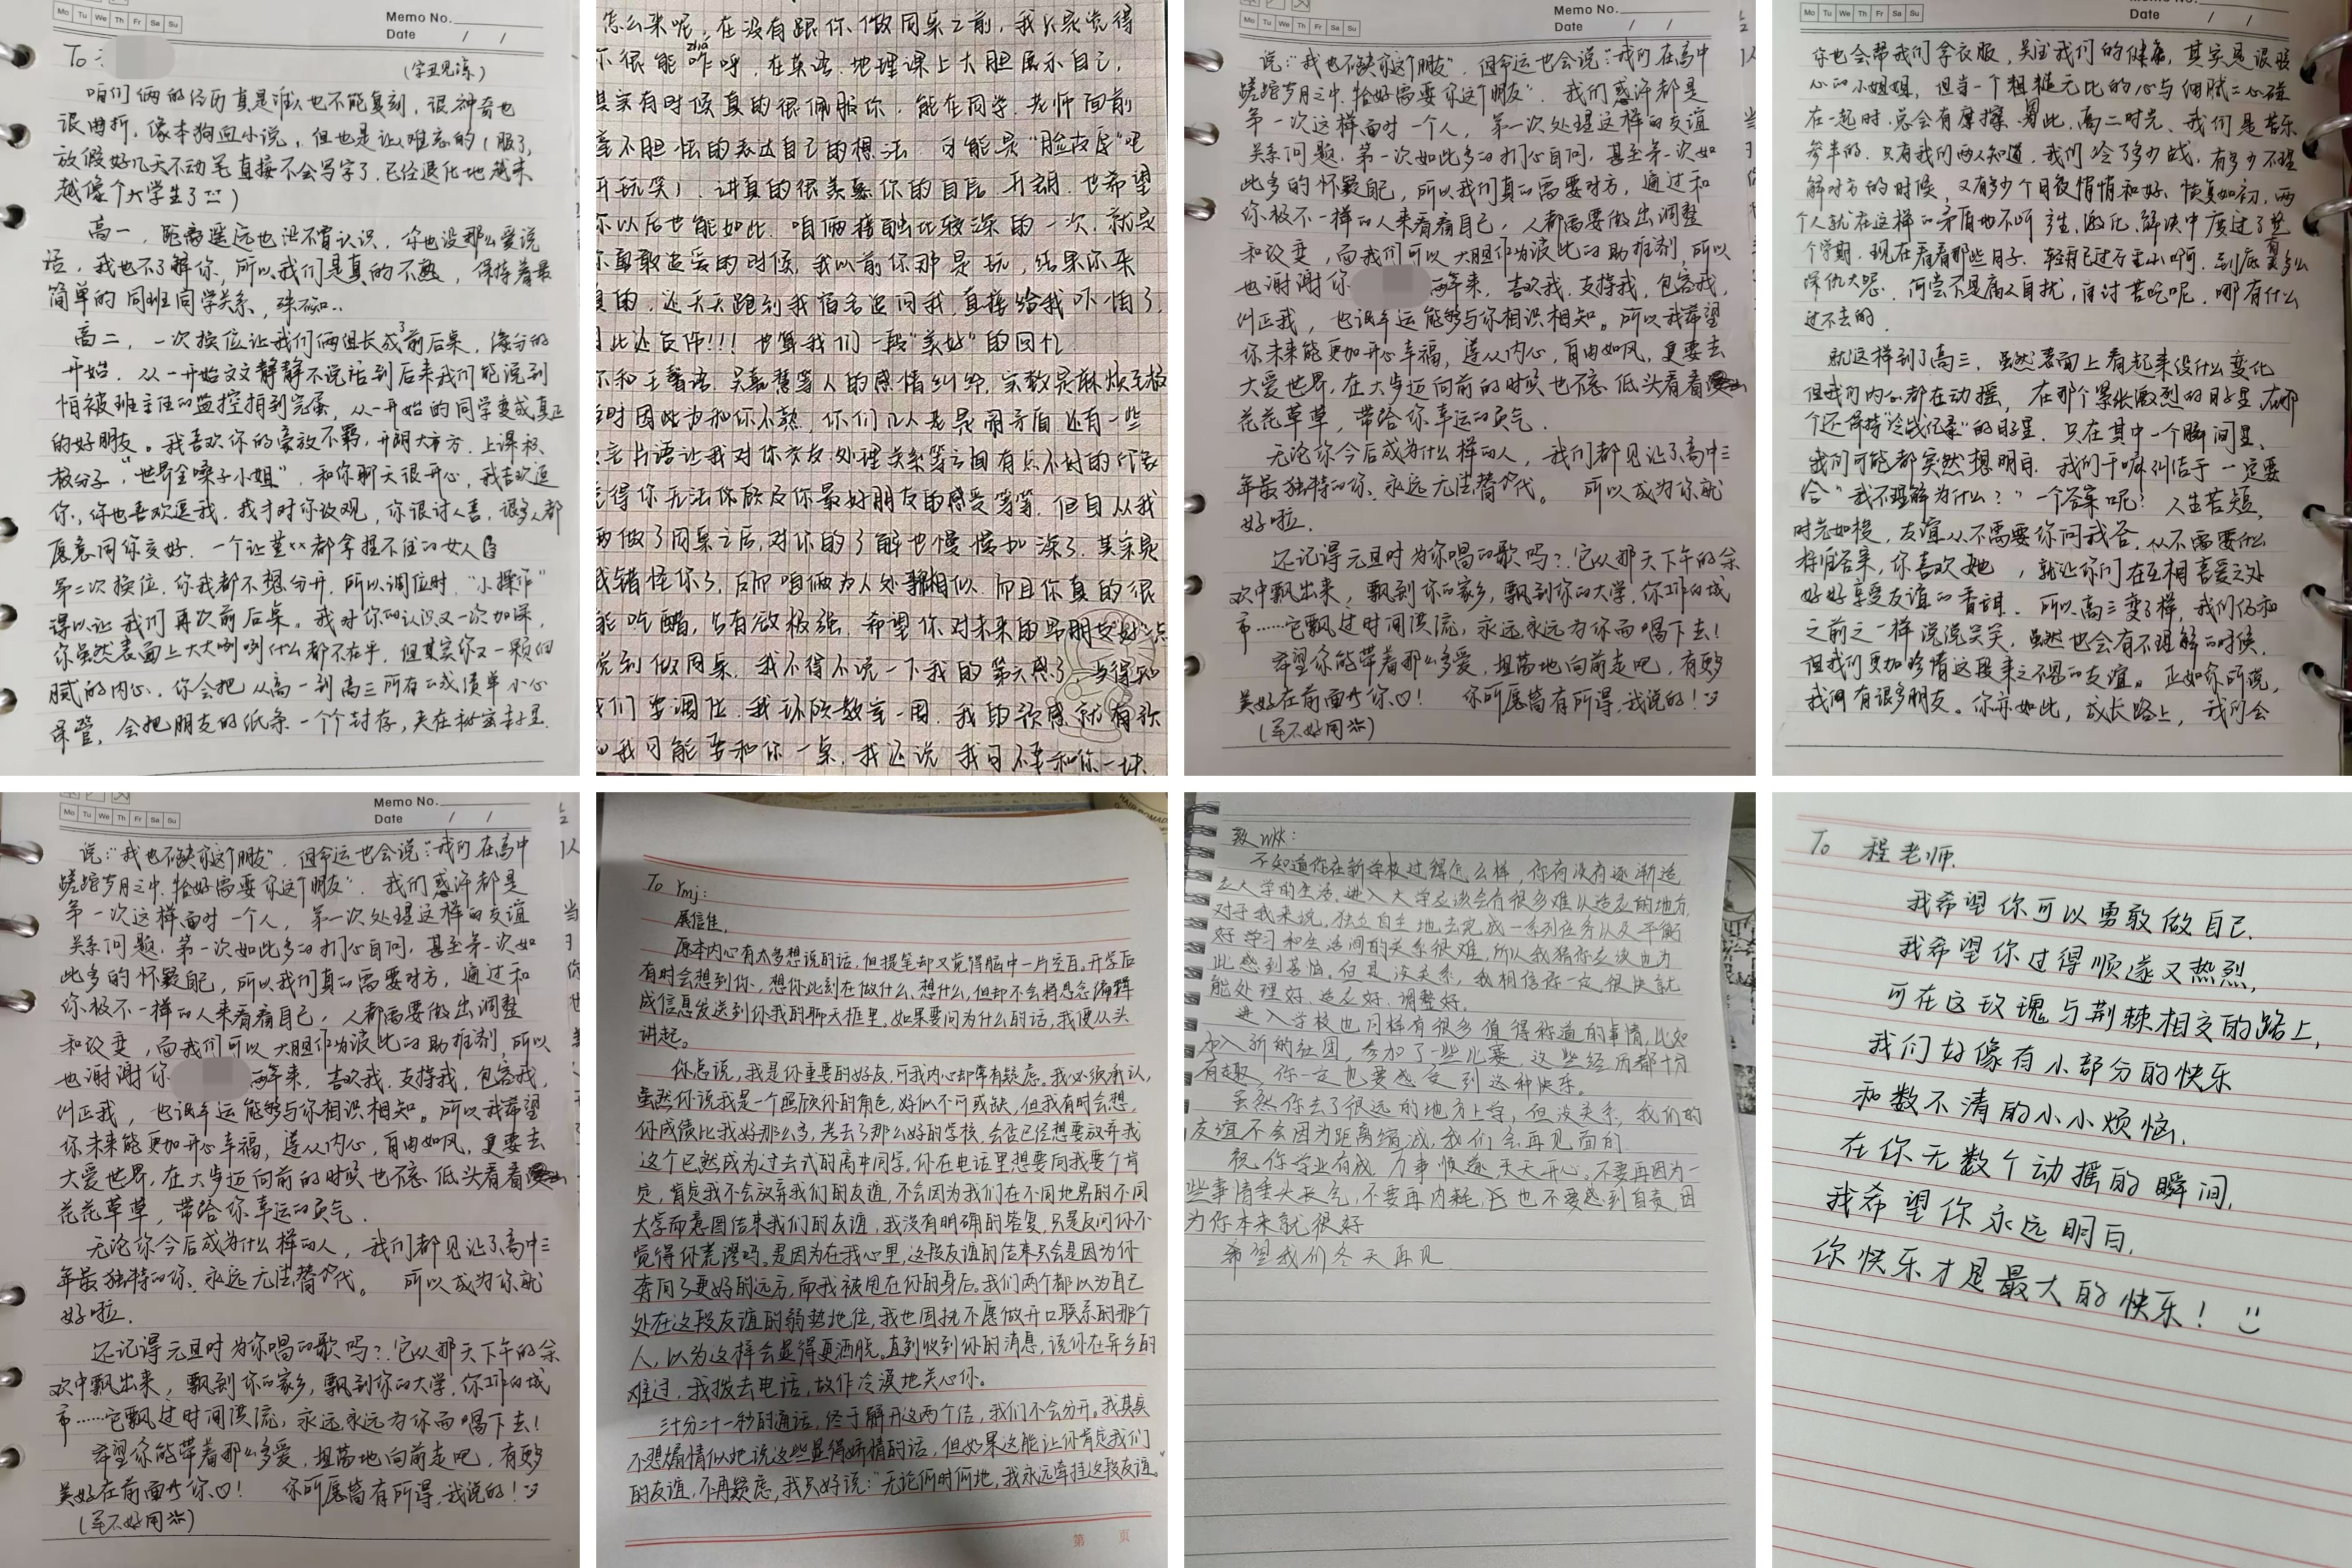 Memo No.
Mo Tu We Th Fr Sa Su
Date / /
To
(字丑见凉)
咱们俩的经历真是谁也不能复刻，很神奇也
很曲折，像本狗血小说，但也是让人难忘的(服了，
放假好几天不动笔直接不会写字了，已经退化地越来
越像个大学生了)
高一，距离遥远也没不曾认识，你也没那么爱说
话，我也不了解你，所以我们是真的不熟，保持着最
简单的同班同学关系，殊不知..
高二，一次换位让我们俩组长成了前后桌，缘分的
开始，从一开始文文静静不说话到后来我们能说到
怕被班主任的监控拍到完蛋，从一开始的同学变成真正
的好朋友。我喜欢你的豪放不羁，开朗大方，上课积
极分子，“世界全嗓子小姐”，和你聊天很开心，我喜欢逗
你，你也喜欢逗我，我才对你改观，你很讨人喜，很多人都
愿意同你交好，一个让董xx都拿捏不住的女人
第二次换位，你我都不想分开，所以调位时，“小操作”
得以让我们再次前后桌。我对你的认识又一次加深，
你虽然表面上大大咧咧什么都不在乎，但其实你又一颗细
腻的内心，你会把从高一到高三所有的成绩单小心
保管，会把朋友的纸条一个个封存，夹在秘密本子里，
怎么来呢，在没有跟你做同桌之前，我只是觉得
很能咋呼，在英语、地理课上大胆展示自己，
其实有时候真的很佩服你，能在同学、老师面前
毫不胆怯的表达自己的想法 可能是“脸皮厚”吧
开玩笑），讲真的很羡慕你的自信、开朗，也希望
你以后也能如此。咱俩接触比较深的一次，就是
你勇敢追爱的时候，我以前你那是玩，结果你来
真的，还天天跑到我宿舍追问我，直接给我吓怕了，
因此还反作!!! 也算我们一段“美好”的回忆
你和王馨语、吴嘉慧等人的感情纠纷，实数是麻烦至极
当时因此为和你不熟，你们几人老是闹矛盾还有一些
只言片语让我对你交友、处理关系等方面有点不好的印象
觉得你无法体顾及你最好朋友的感受等等。但自从我
俩做了同桌之后，对你的了解也慢慢加深了，其实是
我错怪你了，反而咱俩为人处事相似，而且你真的很
能吃醋，占有欲极强，希望你对未来的男朋友“好”点
说到做同桌，我不得不说一下我的第六感了，当得知
我们要调位，我环顾教室一周，我的预感就有预
感我可能要和你一桌，我还说我可不要和你一块
Memo No.
Date / /
Mo Tu We Th Fr Sa Su
说：“我也不缺你这个朋友”，但命运也会说：“我们在高中
蹉跎岁月之中，恰好需要你这个朋友”。我们或许都是
第一次这样面对一个人，第一次处理这样的友谊
关系问题，第一次如此多的扪心自问，甚至第一次如
此多的怀疑自己，所以我们真的需要对方，通过和
你极不一样的人来看看自己，人都需要做出调整
和改变，而我们可以大胆作为彼此的助推剂，所以
也谢谢你 两年来，喜欢我，支持我，包容我，
纠正我，也很幸运能够与你相识相知。所以我希望
你未来能更加开心幸福，遵从内心，自由如风，更要去
大爱世界，在大步迈向前的时候也不忘低头看看
花花草草，带给你幸运的勇气．
无论你今后成为什么样的人，我们都见证了高中三
年最独特的你，永远无法替代。 所以成为你就
好啦．
还记得元旦时为你唱的歌吗？它从那天下午的余
欢中飘出来，飘到你的家乡，飘到你的大学，你工作的城
市……它飘过时间洪流，永远永远为你而唱下去！
希望你能带着那么多爱，坦荡地向前走吧，有更多
美好在前面等你♡！ 你所愿皆有所得，我说的！
(笔不好用)
Mo Tu We Th Fr Sa Su
Date / /
你也会帮我们拿衣服，关注我们的健康，其实是很暖
心的小姐姐，但当一个粗糙无比的心与细腻之心碰
在一起时，总会有摩擦，因此，高二时光，我们是苦乐
参半的，只有我们两人知道，我们冷了多少战，有多少不理
解对方的时候，又有多少个日夜悄悄和好，恢复如初，两
个人就在这样的矛盾也不断产生、恶化、解决中度过了整
个学期，现在看看那些日子，轻舟已过万重山啊，到底有多么
深仇大恨，何尝不是庸人自扰，自讨苦吃呢，哪有什么
过不去的．
就这样到了高三，虽然表面上看起来没什么变化
但我们内心都在动摇，在那个紧张激烈的日子里，在那
个还保持“冷战伝承”的日子里，只在其中一个瞬间里，
我们可能都突然想明白，我们干嘛纠结于一定要
给“我不理解为什么？”一个答案呢？人生苦短，
时光如梭，友谊从不需要你问我答，从不需要什么
标准答案，你喜欢她，就让你们在互相喜爱之处
好好享受友谊的香甜．所以高三变了样，我们仍和
之前之一样说说笑笑，虽然也会有不理解的时候，
但我们更加珍惜这段来之不易的友谊。正如你所说，
我们有很多朋友。你亦如此，成长路上，我们会
Memo No.
Date / /
Mo Tu We Th Fr Sa Su
说：“我也不缺你这个朋友”，但命运也会说：“我们在高中
蹉跎岁月之中，恰好需要你这个朋友”。我们或许都是
第一次这样面对一个人，第一次处理这样的友谊
关系问题，第一次如此多的扪心自问，甚至第一次如
此多的怀疑自己，所以我们真的需要对方，通过和
你极不一样的人来看看自己，人都需要做出调整
和改变，而我们可以大胆作为彼此的助推剂，所以
也谢谢你 两年来，喜欢我，支持我，包容我，
纠正我，也很幸运能够与你相识相知。所以我希望
你未来能更加开心幸福，遵从内心，自由如风，更要去
大爱世界，在大步迈向前的时候也不忘低头看看
花花草草，带给你幸运的勇气．
无论你今后成为什么样的人，我们都见证了高中三
年最独特的你，永远无法替代。 所以成为你就
好啦．
还记得元旦时为你唱的歌吗？它从那天下午的余
欢中飘出来，飘到你的家乡，飘到你的大学，你工作的城
市……它飘过时间洪流，永远永远为你而唱下去！
希望你能带着那么多爱，坦荡地向前走吧，有更多
美好在前面等你♡！ 你所愿皆有所得，我说的！
(笔不好用)
To Ymj：
展信佳，
原本内心有太多想说的话，但提笔却又觉得脑中一片空白。开学后
有时会想到你，想你此刻在做什么、想什么，但却不会将思念编辑
成信息发送到你我的聊天框里，如果要问为什么的话，我便从头
讲起。
你总说，我是你重要的好友，可我内心却常有疑虑。我必须承认，
虽然你说我是一个照顾你的角色，好似不可或缺，但我有时会想，
你成绩比我好那么多，考去了那么好的学校，会否已经想要放弃我
这个已然成为过去式的高中同学，你在电话里想要向我要个肯
定，肯定我不会放弃我们的友谊，不会因为我们在不同地界的不同
大学而意图结束我们的友谊，我没有明确的答复，只是反问你不
觉得你荒谬吗。是因为在我心里，这段友谊的结束只会是因为你
奔向了更好的远方，而我被甩在你的身后。我们两个都以为自己
处在这段友谊的弱势地位，我也固执不愿做开口联系的那个
人，以为这样会显得更洒脱。直到收到你的消息，说你在异乡的
难过，我拨去电话，故作冷漠地关心你。
三十分二十一秒的通话，终于解开这两个结，我们不会分开。我其实
不想煽情似地说这些显得矫情的话，但如果这能让你肯定我们
的友谊，不再疑虑，我只好说：“无论何时何地，我永远牵挂这段友谊。”
第 页
致 wkk：
不知道你在新学校过得怎么样，你有没有逐渐适
应大学的生活，进入大学应该会有很多难以适应的地方，
对于我来说，独立自主地去完成一系列任务以及平衡
好学习和生活间的关系很难，所以我猜你应该也为
此感到苦恼，但是没关系，我相信你一定很快就
能处理好、适应好、调整好．
进入学校也同样有很多值得称道的事情，比如
加入新的社团，参加了一些比赛，这些经历都十分
有趣，你一定也要感受到这种快乐。
虽然你去了很远的地方上学，但没关系，我们的
友谊不会因为距离缩减，我们会再见面的．
祝你学业有成，万事顺遂，天天开心。不要再因为一
些事情垂头丧气，不要再内耗，也不要感到自责，因
为你本来就很好
希望我们冬天再见
To 程老师．
我希望你可以勇敢做自己．
我希望你过得顺遂又热烈，
可在这玫瑰与荆棘相交的路上，
我们好像有小部分的快乐
和数不清的小小烦恼．
在你无数个动摇的瞬间，
我希望你永远明白，
你快乐才是最大的快乐！